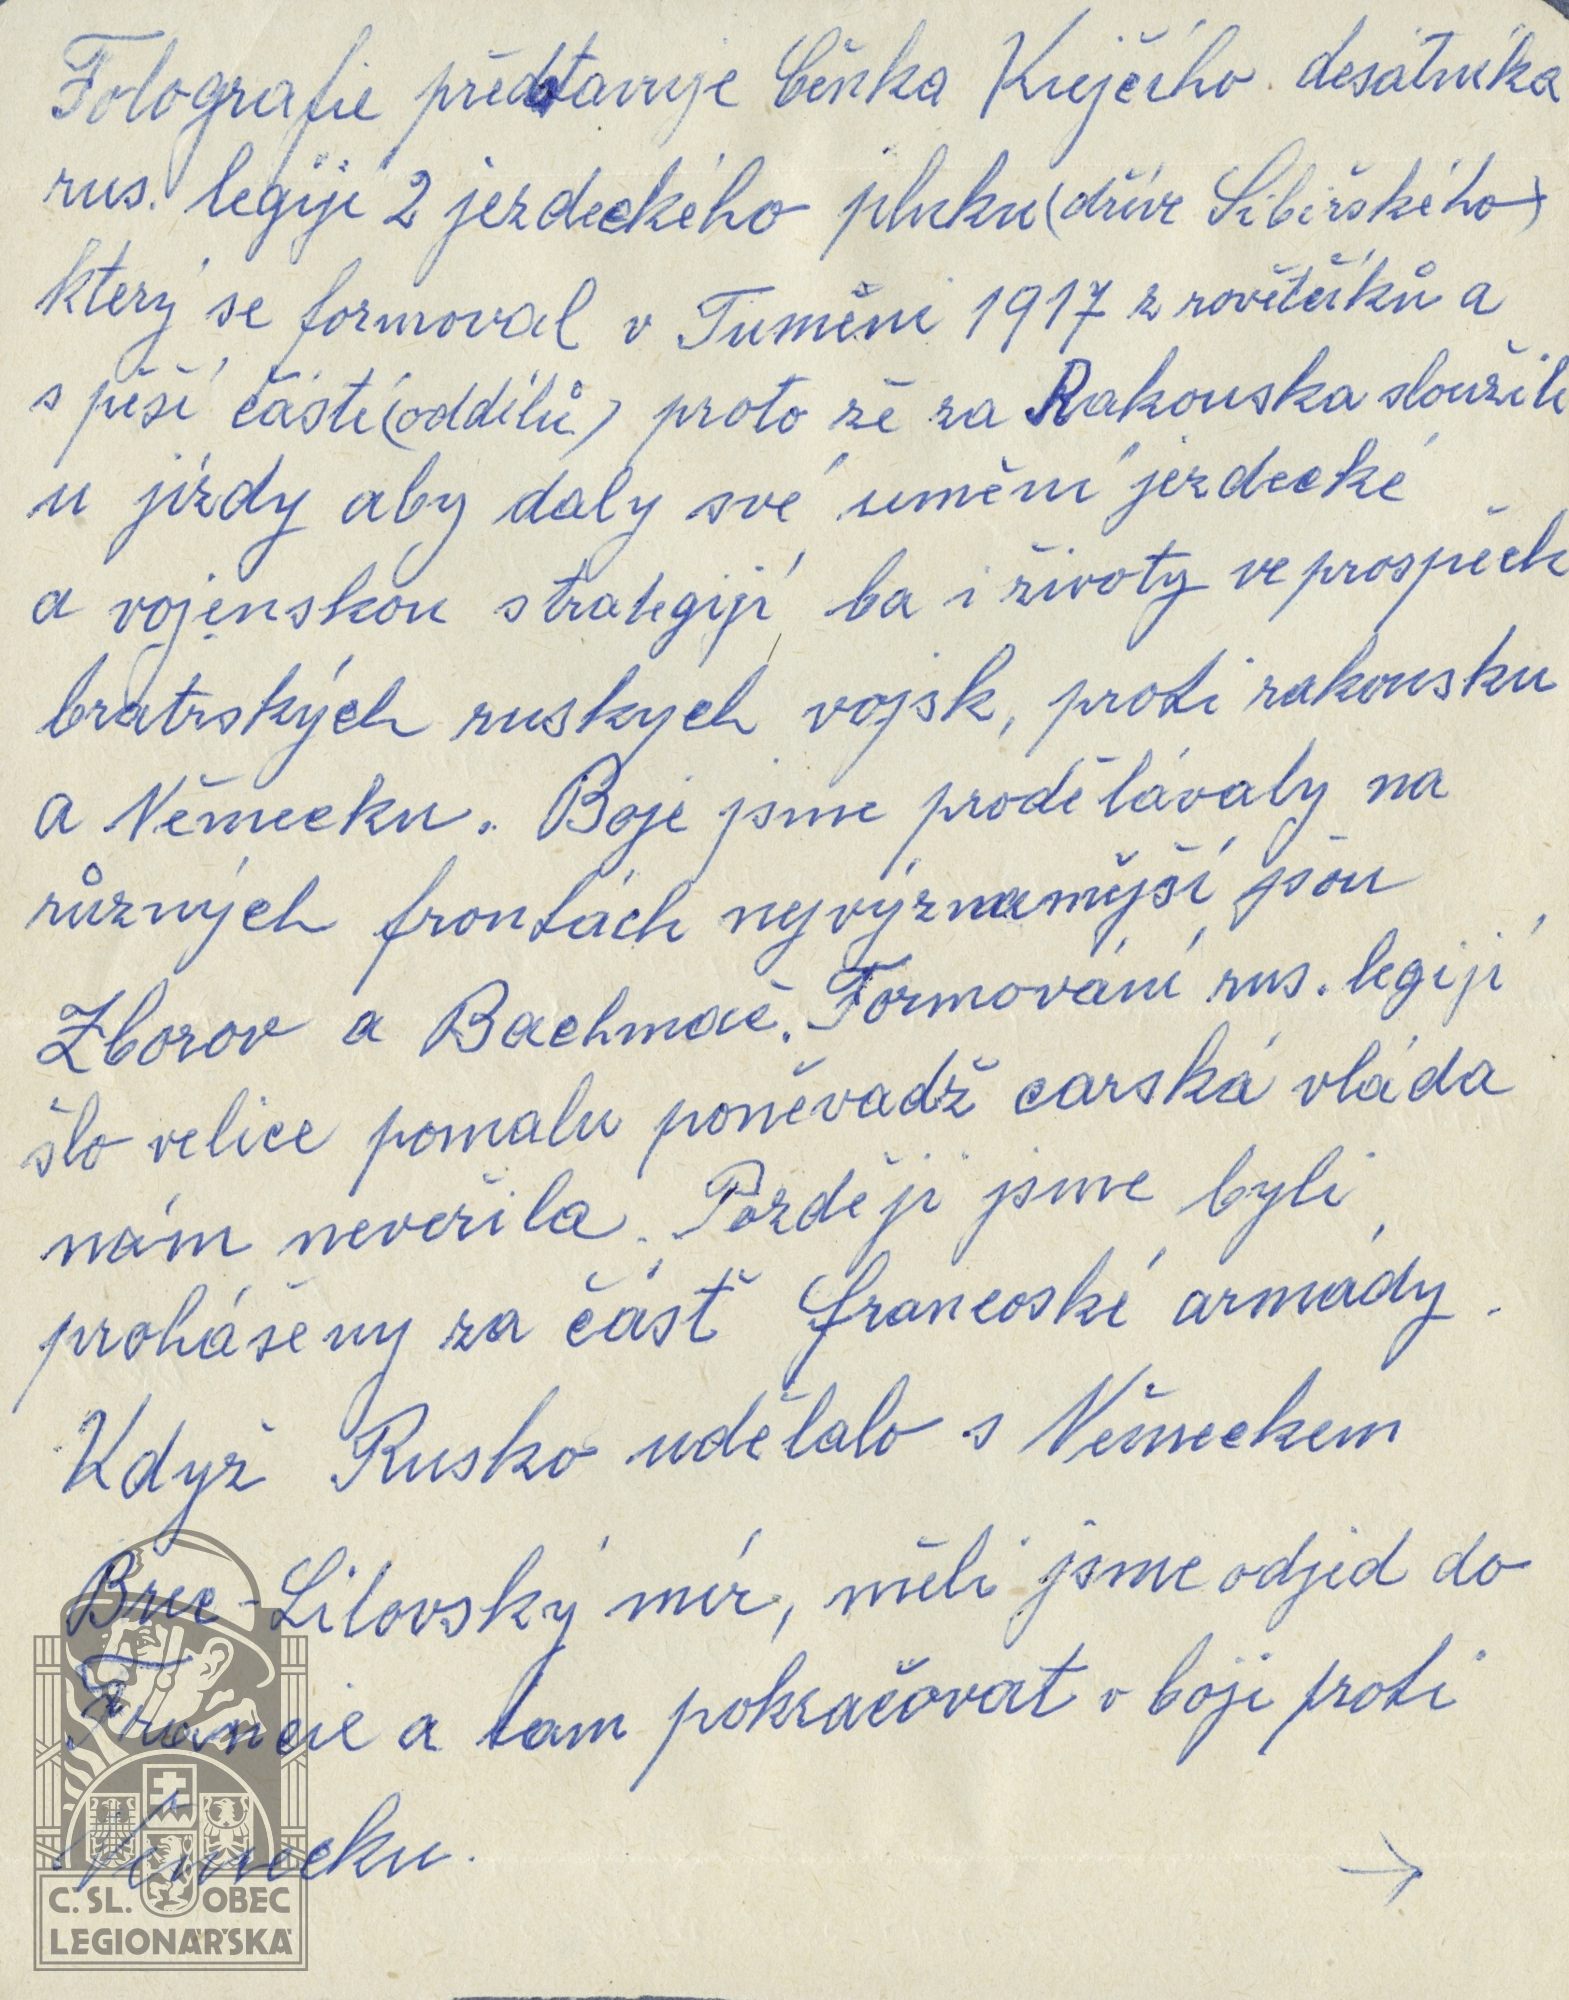 Fotografie představuje Čeňka Krejčího desátníka
rus. legijí 2 jezdeckého pluku (dříve Sibiřského)
který se formoval v Tuměni 1917 z rovětčíků a
s pěší části (oddílů) proto že za Rakouska sloužili
u jízdy aby daly své umění jezdecké
a vojenskou strategijí ba i životy ve prospěch
bratrských ruskych vojsk, proti rakousku
a Německu. Boje jsme prodělávaly na
různých frontách nejvýznamějši jsou
Zborov a Bachmač. Formování rus. legijí
šlo velice pomalu poněvadž carská vláda
nám neveřila. Pozdějí jsme byli
prohášeny za část francoské armády.
Když Rusko udělalo s Německem
Brec-Litovský mír, měli jsme odjed do
Francie a tam pokračovat v boji proti
Německu. →
Č. SL. OBEC
LEGIONÁŘSKÁ